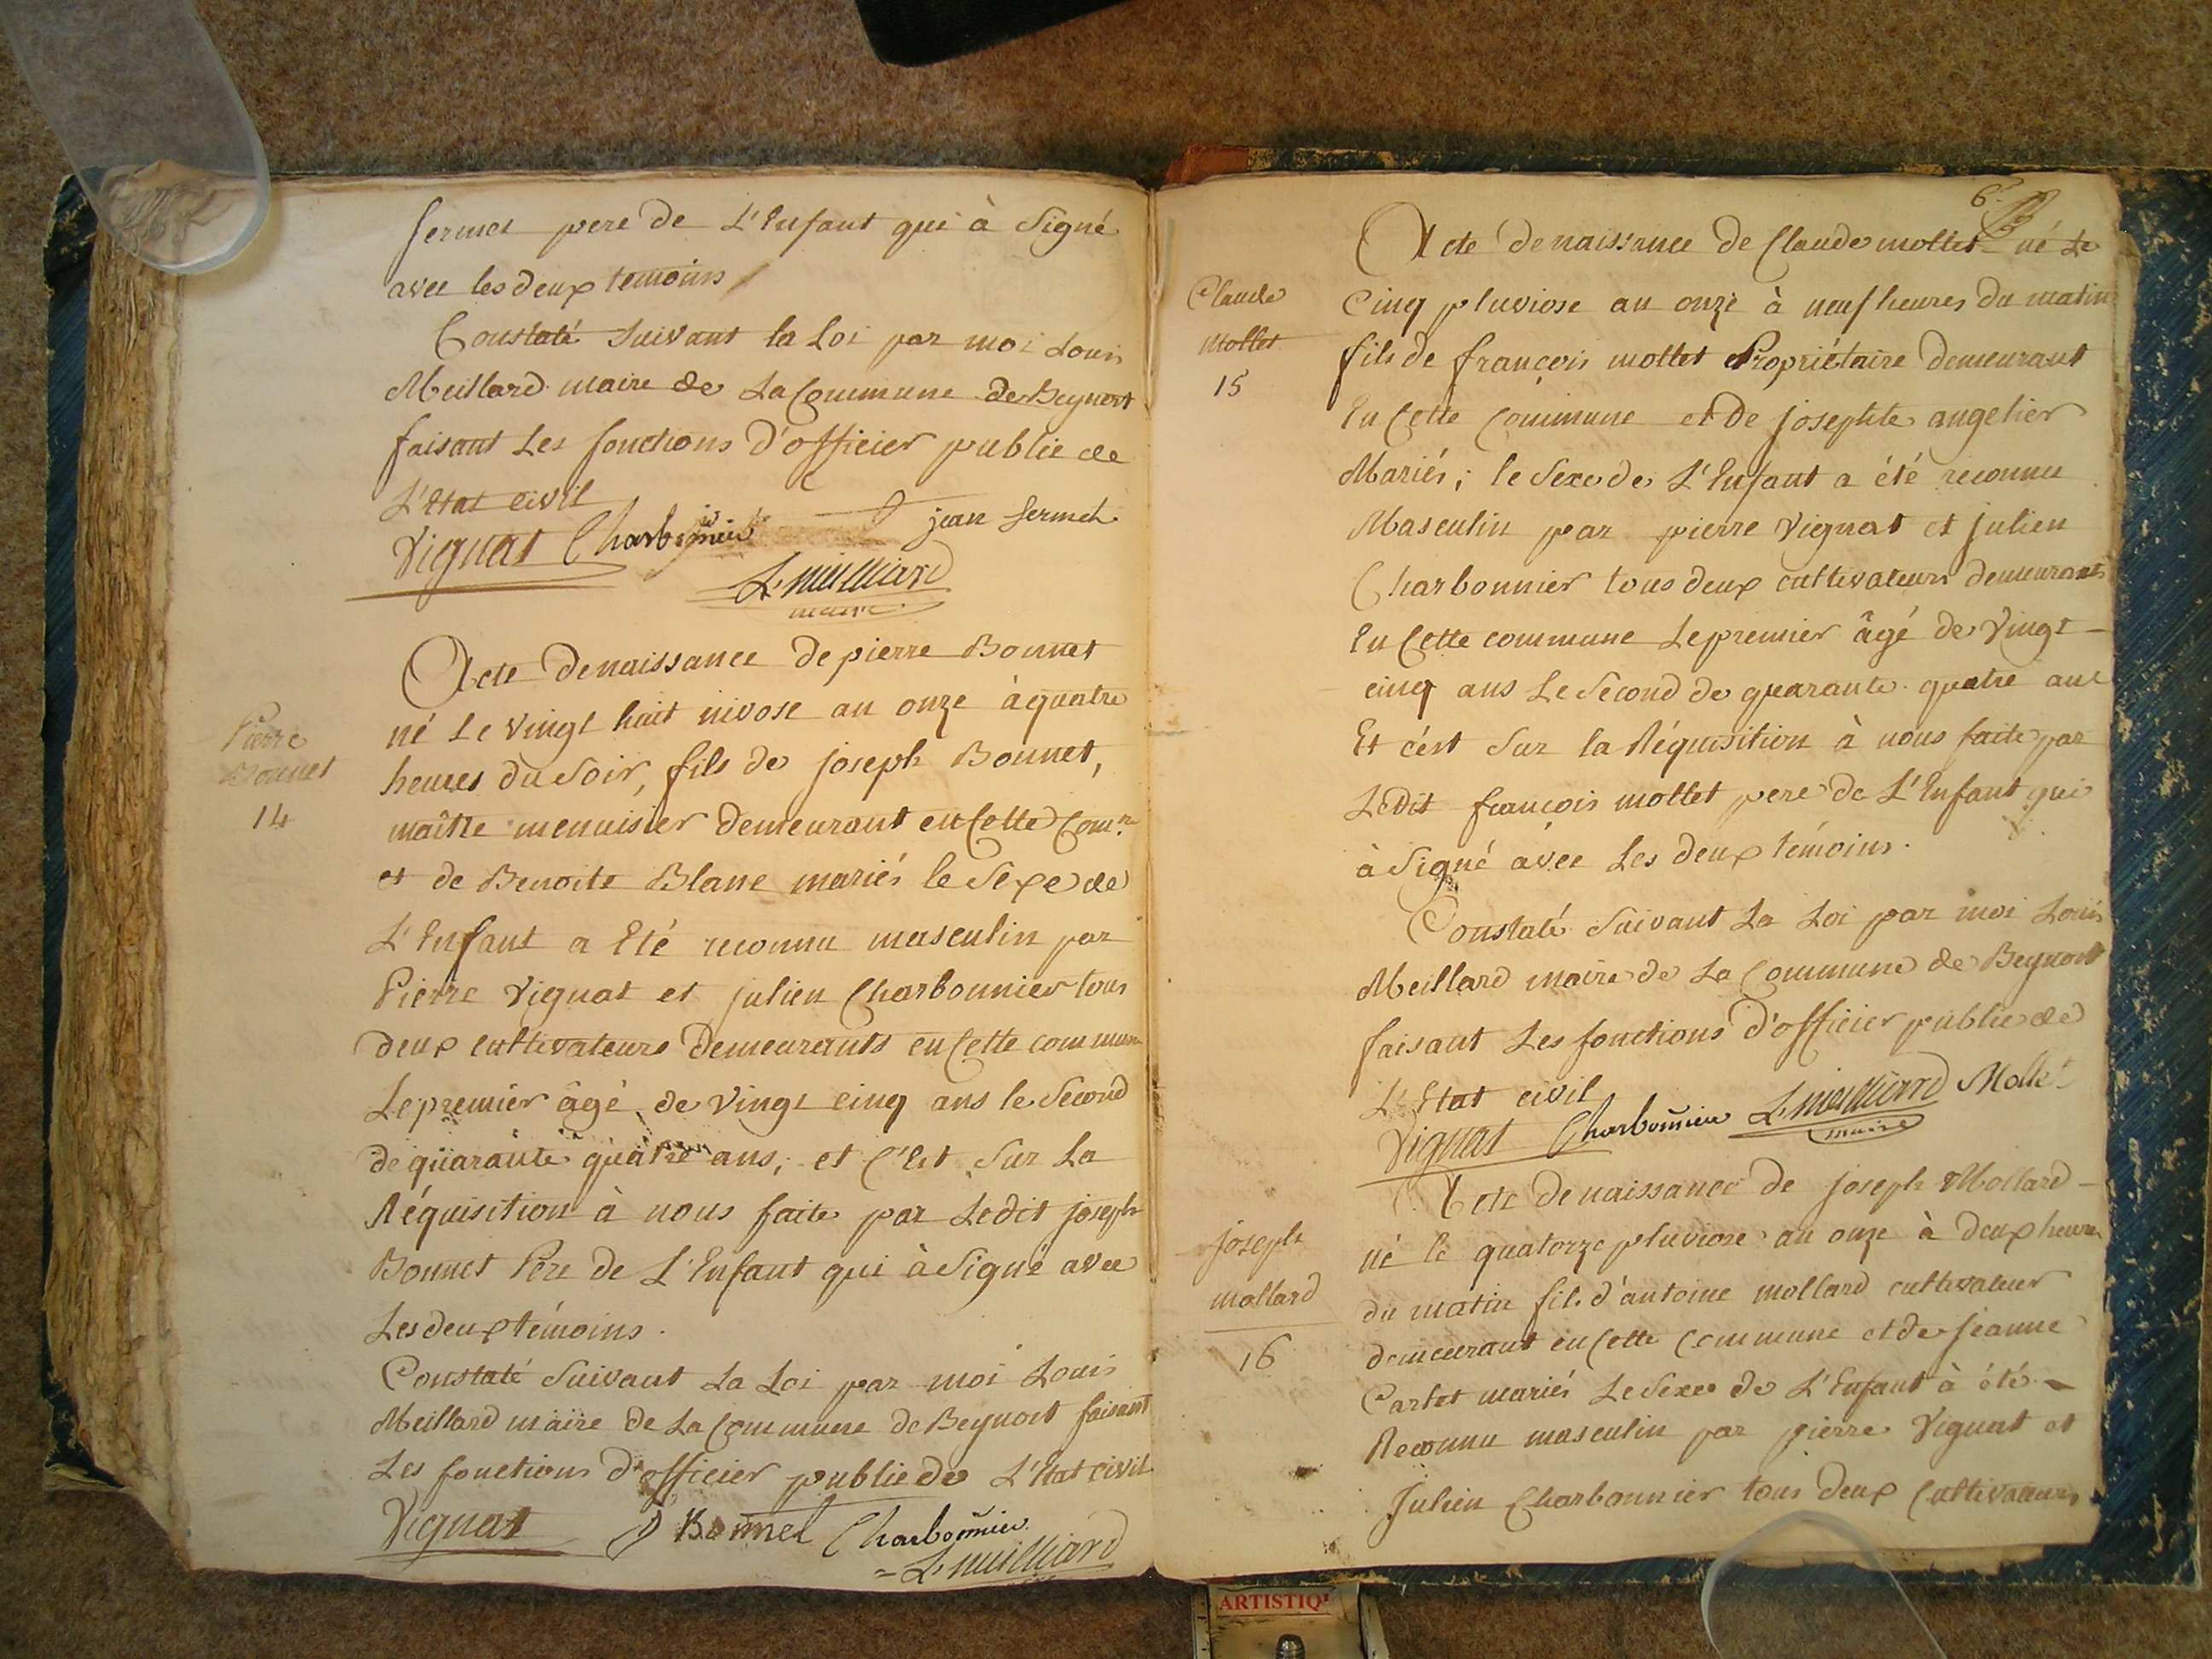 fermet pere de L'Enfant qui à Signé
avec les deux temoins
Constaté Suivant la Loi par moi Louis
Meillard maire de La Commune de Beynost
faisant Les fonctions d'officier public de
L'Etat civil
Vignat Charbonnier jean fermet
L. meilliard
maire
Pierre
Bonnet
14
Acte de naissance de pierre Bonnet
né Le vingt huit nivose an onze à quatre
heures du Soir, fils de joseph Bonnet,
maître menuisier demeurant en Cette Com.ne
et de Benoite Blanc mariés le Sexe de
L'Enfant a Eté reconnu masculin par
Pierre Vignat et julien Charbonnier tous
deux cultivateurs demeurants en Cette commune
Le premier âgé de vingt cinq ans le Second
de quarante quatre ans, et C'Est Sur La
Réquisition à nous faite par Ledit joseph
Bonnet Pere de L'Enfant qui à Signé avec
Les deux témoins.
Constaté Suivant La Loi par moi Louis
Meillard maire de La Commune de Beynost faisant
Les fonctions d'officier public de L'Etat civil
Vignat J Bonnet Charbonnier
L. meilliard
6.e
Claude
mollet
15
Acte de naissance de Claude mollet né Le
Cinq pluviose an onze à neuf heures du matin
fils de françois mollet Propriétaire demeurant
En Cette Commune et de josephte angelier
Mariés; le Sexe de L'Enfant a été reconnu
Masculin par pierre Vignat et julien
Charbonnier tous deux cultivateurs demeurants
En Cette commune Le premier âgé de Vingt
cinq ans Le Second de quarante quatre ans
Et c'est Sur la Réquisition à nous faite par
Ledit françois mollet pere de L'Enfant qui
à Signé avec Les deux témoins.
Constaté Suivant La Loi par moi Louis
Meillard maire de La Commune de Beynost
faisant Les fonctions d'officier public de
L'Etat civil
Vignat Charbonnier L. meilliard Mollet
maire
joseph
mollard
16
Acte de naissance de joseph Mollard
né le quatorze pluviose an onze à deux heures
du matin fils d'antoine mollard cultivateur
demeurant en Cette Commune et de jeanne
Cartet mariés Le Sexe de L'Enfant à été
Reconnu masculin par pierre Vignat et
Julien Charbonnier tous deux Cultivateurs
ARTISTIQ'